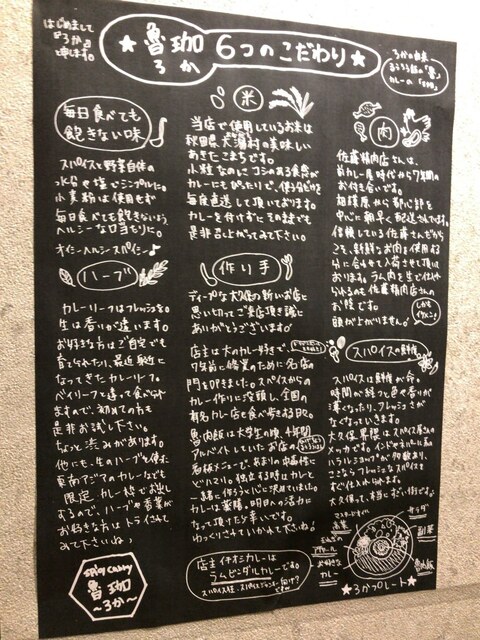 はじめまして
"ろか"と
申します。
★魯珈 6つのこだわり★
ろか
ろかの由来
カレーの
毎日食べても
飽きない味
スパイスと野菜自体の
水分や塩でシンプルに。
小麦粉は使用せず
毎日食べても飽きないよう
ヘルシーな口当たりに。
オイシーヘルシースパイシー♪
ハーブ
カレーリーフはフレッシュを。
生は香りが違います。
お好きな方はご自宅でも
育てられたり、最近身近に
なってきたカレーリーフ。
ベイリーフと違って食べれ
ますので、初めての方も
是非お試し下さい。
ちょっと渋みがあります。
他にも、生のハーブを使った
東南アジアのカレーなども
限定カレー枠でお出し
するので、ハーブや香菜が
お好きな方はトライされて
みて下さいね♪
spicy curry
魯珈
~ろか~
米
当店で使用しているお米は
秋田県大潟村の美味しい
あきたこまちです。
小粒なのにコシのある食感が
カレーにもぴったりで、使う分だけを
毎度直送して頂いております。
カレーを付けずにそのままでも
是非召し上がってみて下さい。
作り手
ディープな大久保の新しいお店に
思い切ってご来店頂き誠に
ありがとうございます!
店主は大のカレー好きで、
7年前に修業のために名店の
門を叩きました。スパイスからの
カレー作りに没頭し、全国の
有名カレー店を食べ歩くOL。
魯肉飯は大学生の頃、4年間
アルバイトしていたお店の
看板メニューで、あまりの中毒性に
ドハマり。独立する時はカレーと
一緒に作ろうと心に決めていました。
カレーは薬膳。明日への活力に
なって頂けたら幸いです。
ゆっくりさていいかれて下さいね♪
店主イチオシカレーは
ラムビンダルカレーです。
肉
佐藤精肉店さんは、
前カレー屋時代から7年間の
お付き合いです。
相模原から都心部を
中心に朝早く配送されてます。
信頼している佐藤さんだから
こそ、新鮮なお肉を使用する
分に合わせて入荷させて頂いて
おります。ラム肉を生で仕入れ
られるのも佐藤精肉店さんの
お陰です。
頭が上がりません!
しかも
イケメン!
スパイスの鮮度
スパイスは鮮度が命。
時間が経つと色や香りが
薄くなったり、フレッシュさが
なくなっていきます。
大久保界隈はスパイス屋さんの
メッカです。インドやネパール系の
ハラルショップが多数あり、
いつでもフレッシュなスパイスを
すぐ仕入れられます。
大久保って、本当にすごい街です。
サラダ
副菜
お好きな
カレー
魯肉飯
★ろかプレート★